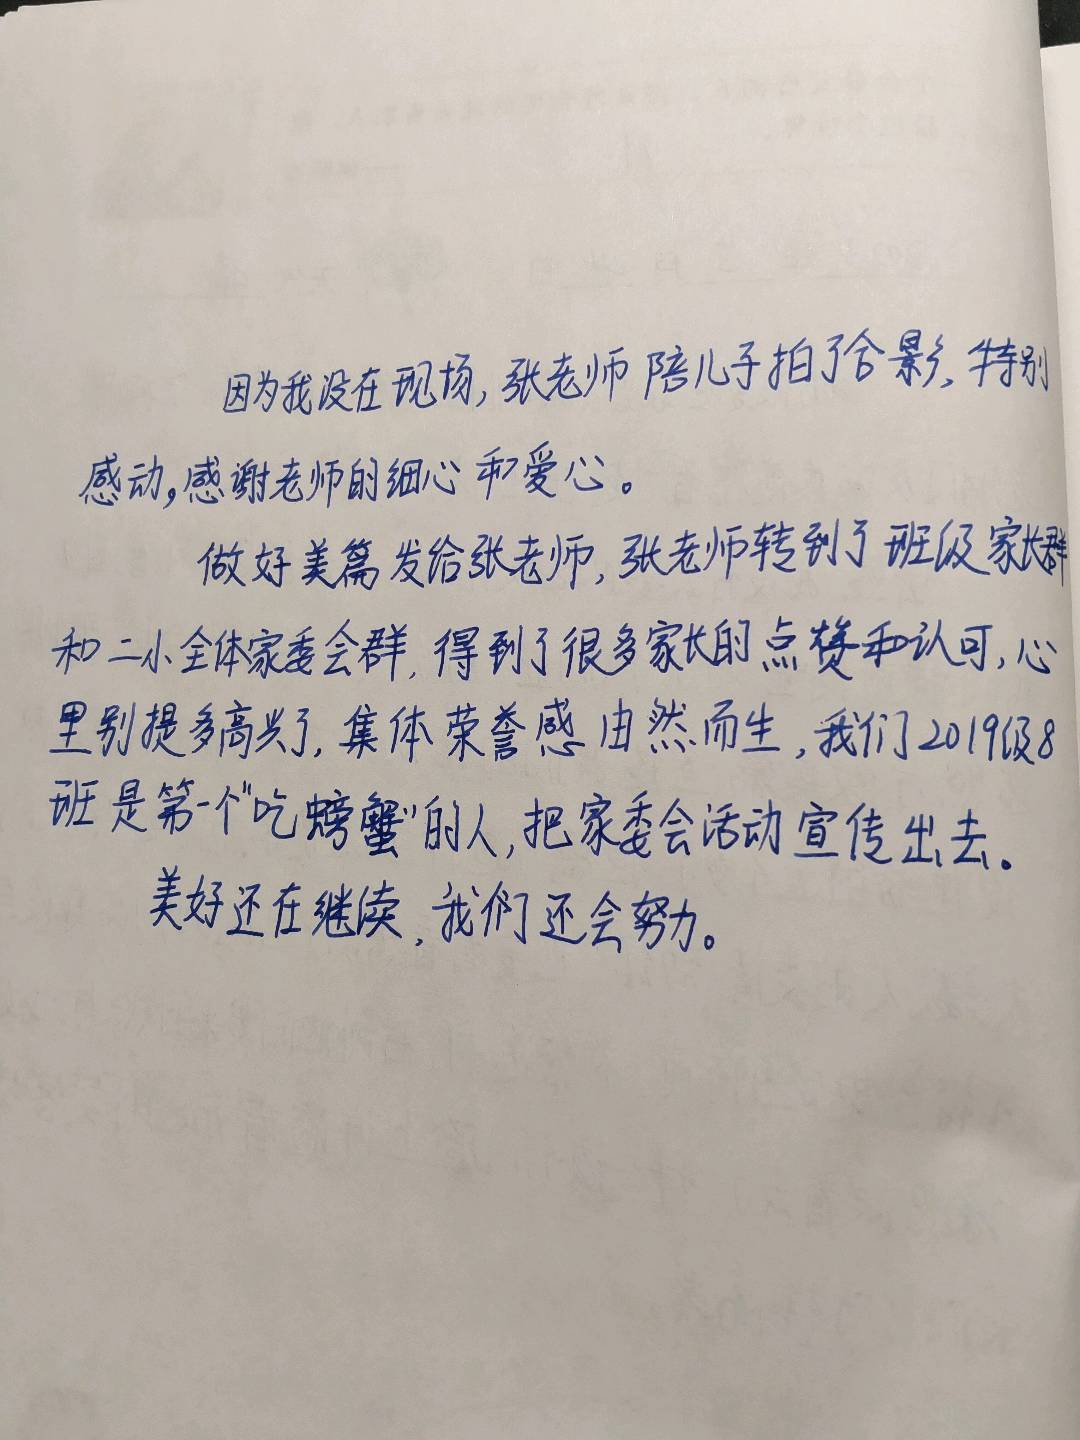 因为我没在现场,张老师陪儿子拍了合影,特别
感动,感谢老师的细心和爱心。
做好美篇发给张老师,张老师转到了班级家长群
和二小全体家委会群,得到了很多家长的点赞和认可,心
里别提多高兴了,集体荣誉感由然而生,我们2019级8
班是第一个"吃螃蟹"的人,把家委会活动宣传出去。
美好还在继续,我们还会努力。